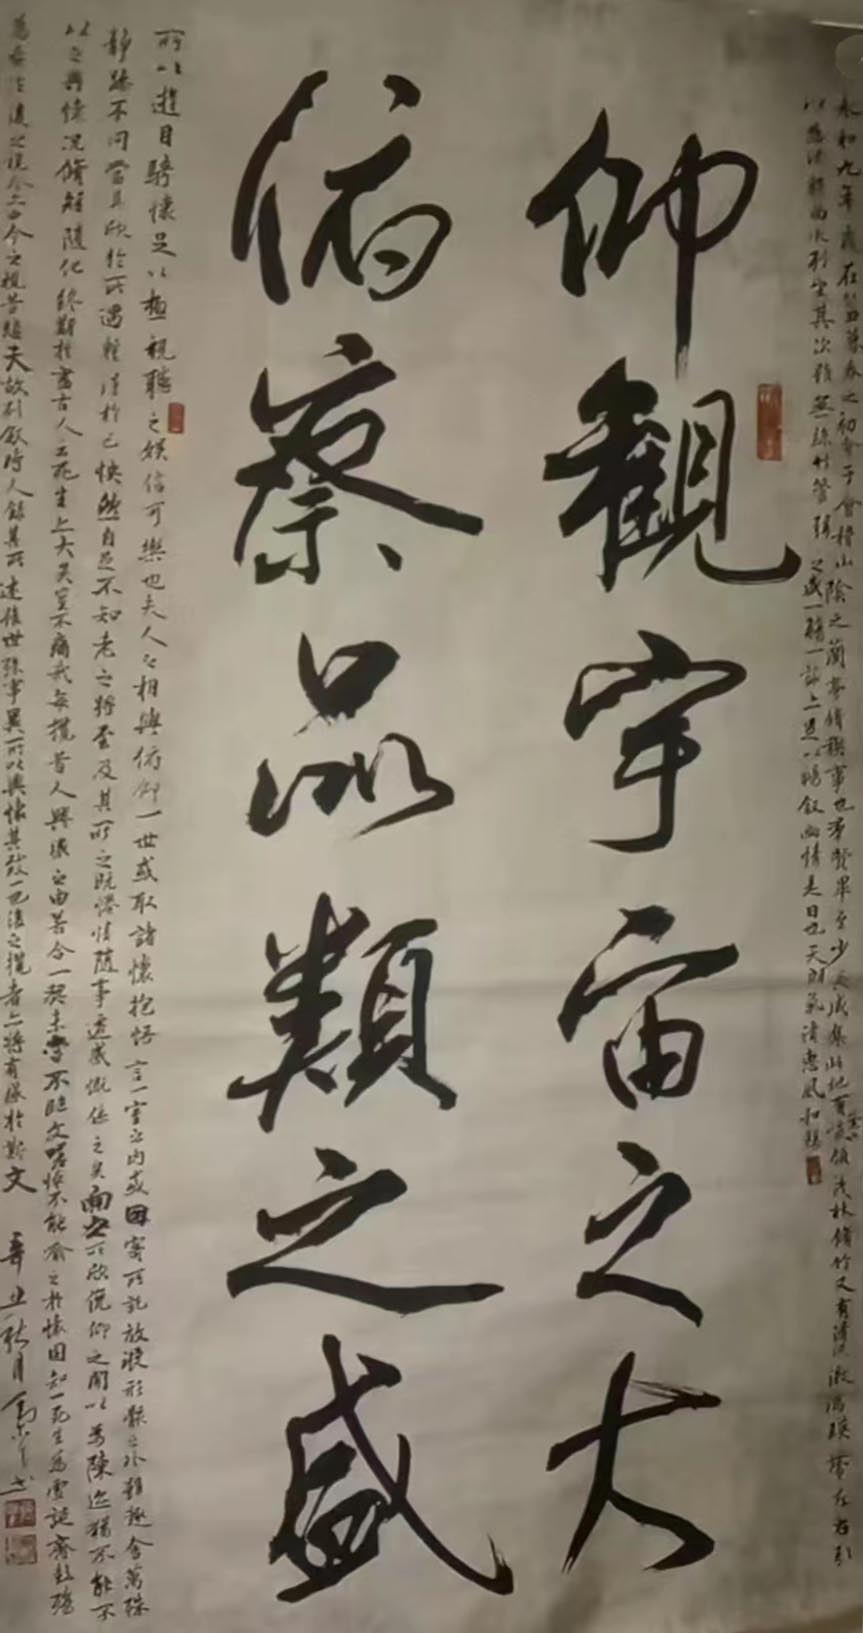 永和九年歲在癸丑暮春之初會于會稽山陰之蘭亭脩禊事也羣賢畢至少長咸集此地有崇山峻領茂林脩竹又有清流激湍暎帶左右引
以為流觴曲水列坐其次雖無絲竹管弦之盛一觴一詠亦足以暢敘幽情是日也天朗氣清惠風和暢
仰觀宇宙之大
俯察品類之盛
所以遊目騁懷足以極視聽之娛信可樂也夫人之相與俯仰一世或取諸懷抱悟言一室之內或因寄所託放浪形骸之外雖趣舍萬殊
靜躁不同當其欣於所遇暫得於己快然自足不知老之將至及其所之既惓情隨事遷感慨係之矣向之所欣俛仰之間以為陳迹猶不能不
以之興懷況脩短隨化終期於盡古人云死生亦大矣豈不痛哉每攬昔人興懷之由若合一契未嘗不臨文嗟悼不能喻之於懷固知一死生為虛誕齊彭殤
為妄作後之視今亦由今之視昔悲夫故列敘時人錄其所述雖世殊事異所以興懷其致一也後之攬者亦將有感於斯文 辛丑秋月 書